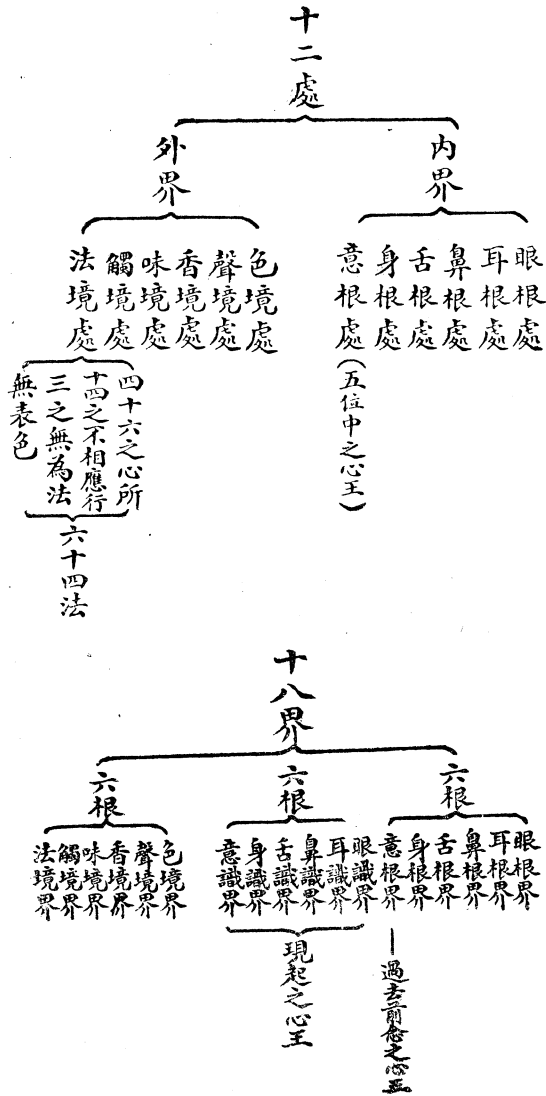 十二處
內界
眼根處
耳根處
鼻根處
舌根處
身根處
意根處
（五位中之心王）
外界
色境處
聲境處
香境處
味境處
觸境處
法境處
四十六之心所
十四之不相應行
三之無為法
無表色
六十四法
十八界
六根
眼根界
耳根界
鼻根界
舌根界
身根界
意根界
過去前念之心王
六根
眼識界
耳識界
鼻識界
舌識界
身識界
意識界
現起之心王
六根
色境界
聲境界
香境界
味境界
觸境界
法境界